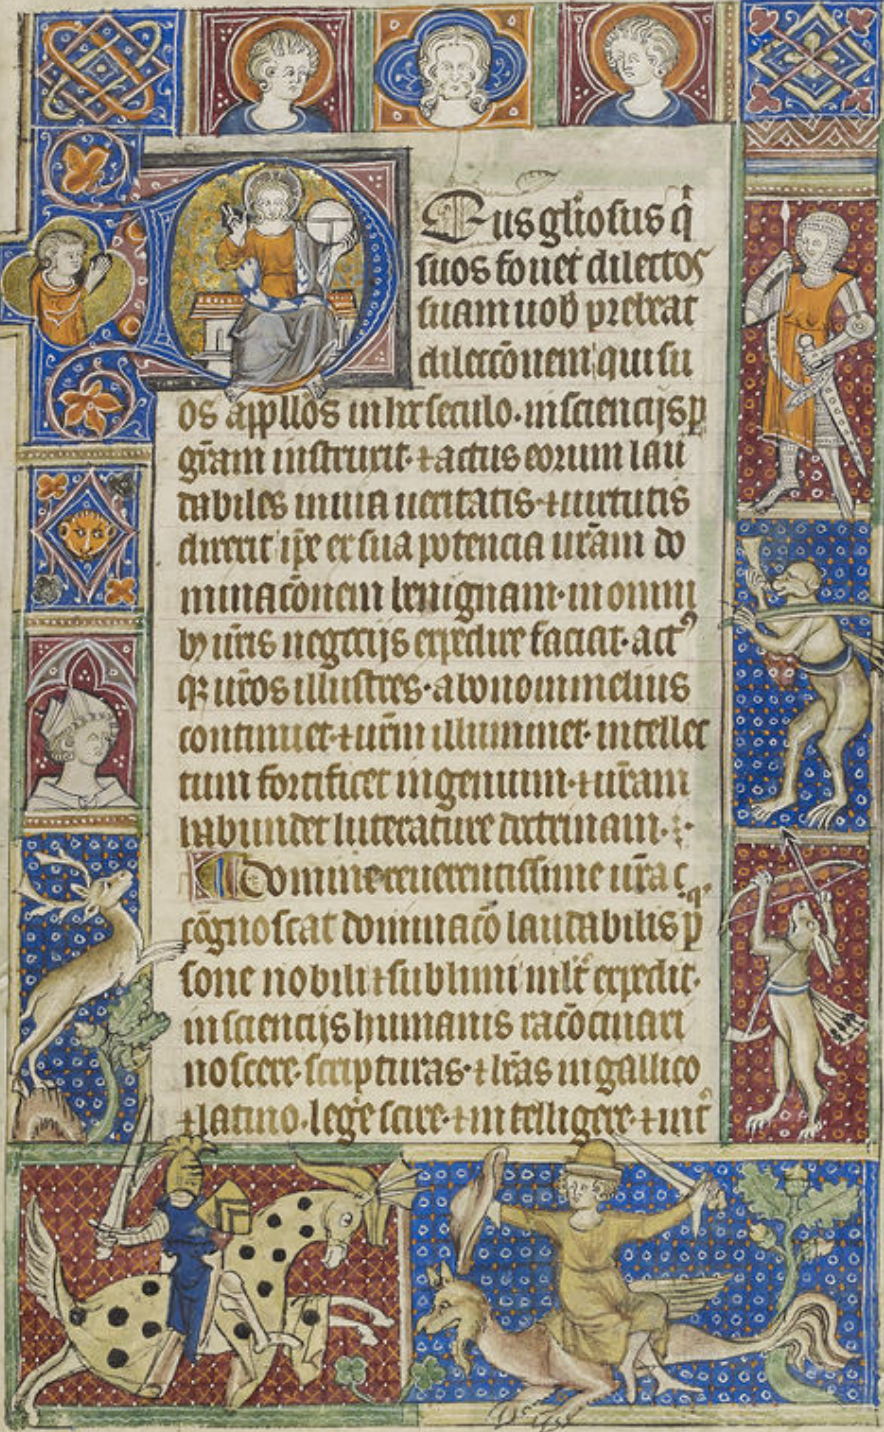 Deus gl̃iosus q̃
suos fouet dilectos
suam uob̃ prebeat
dilecc̃onem qui su
os app̃llos in hoc seculo· in sciencijs ꝑ
gr̃am instruxit· ⁊ actus eorum lau
dabiles in uia ueritatis· ⁊ uirtutis
direxit ip̃e ex sua potencia ur̃am do
minac̃onem benignam· in omni
bꝰ ur̃is negocijs expedire faciat· actꝰ
qꝫ ur̃os illustres· a bono in melius
continuet· ⁊ ur̃m illuminet· intellec
tum fortificet ingenium· ⁊ ur̃am
habundet litterature doctrinam·
Domine reuerentissime ur̃a
cognoscat dominac̃o laudabilis qꝫ ꝑ
sone nobili ⁊ sublimi ml̃t̃ expedit·
in sciencijs humanis rac̃ocinari
noscere· scripturas· ⁊ lr̃as in gallico
⁊ latino· leg̃e scire· ⁊ intellig̃e·